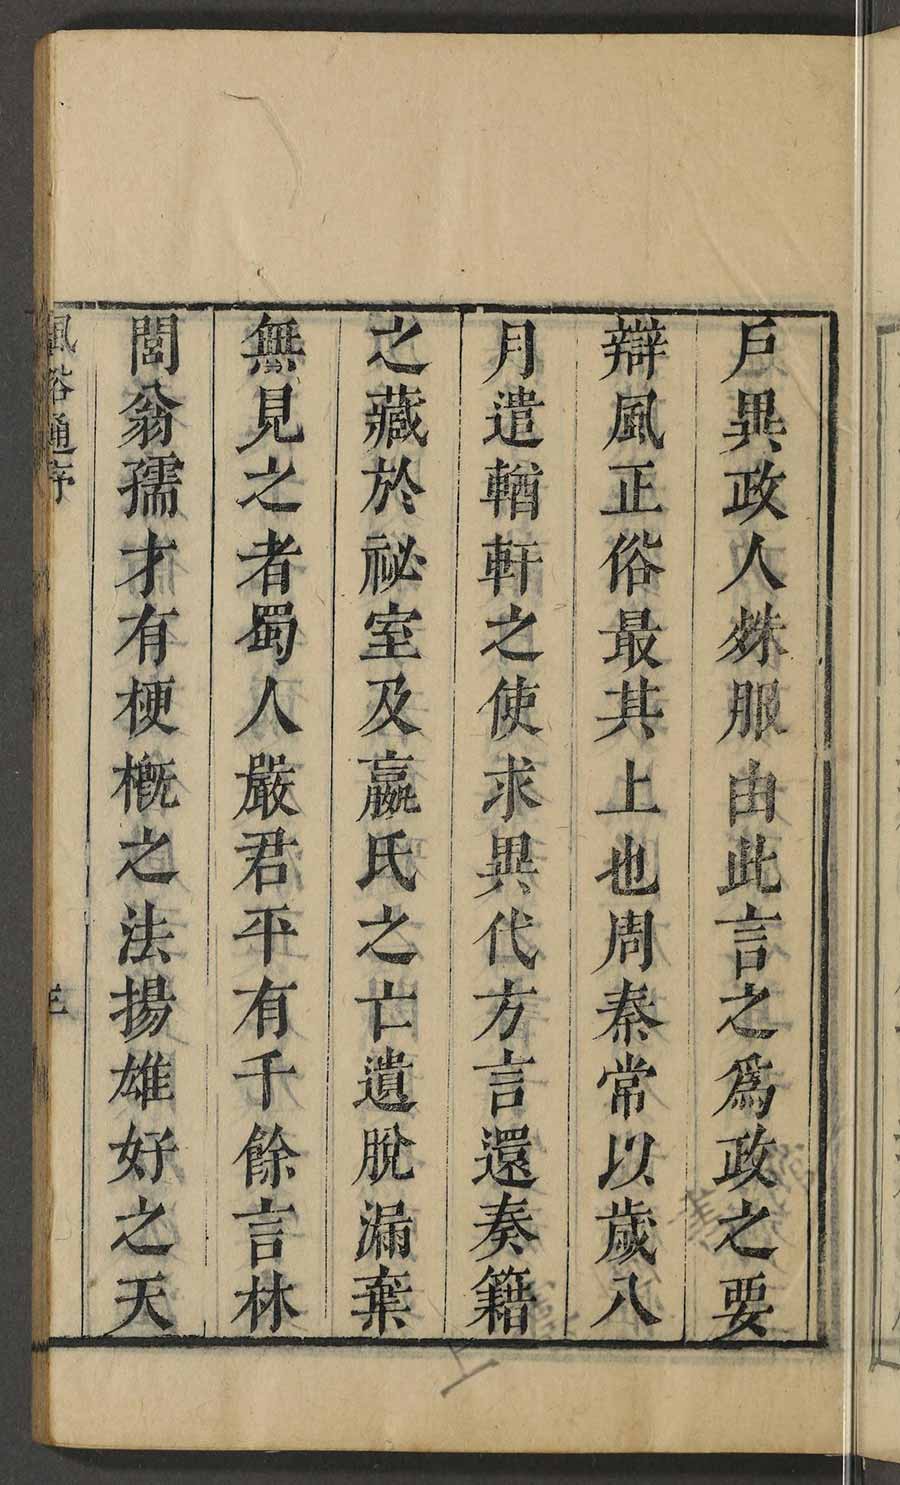 戶異政人殊服由此言之爲政之要
辯風正俗最其上也周秦常以歲八
月遣輶軒之使求異代方言還奏籍
之藏於祕室及嬴氏之亡遺脫漏棄
無見之者蜀人嚴君平有千餘言林
閭翁孺才有梗槪之法揚雄好之天
風俗通序
三